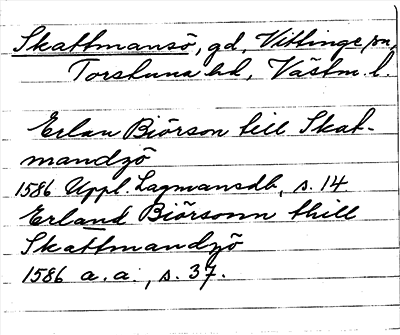 Skattmansö, gd, Vittinge sn,
Torstuna hd, Västm. l.
Erlan Biörson till Skat-
mandzö
1586 Uppl. Lagmansdb, s. 14
Erland Biörsonn thill
Skattmandzö
1586 a. a., s. 37.